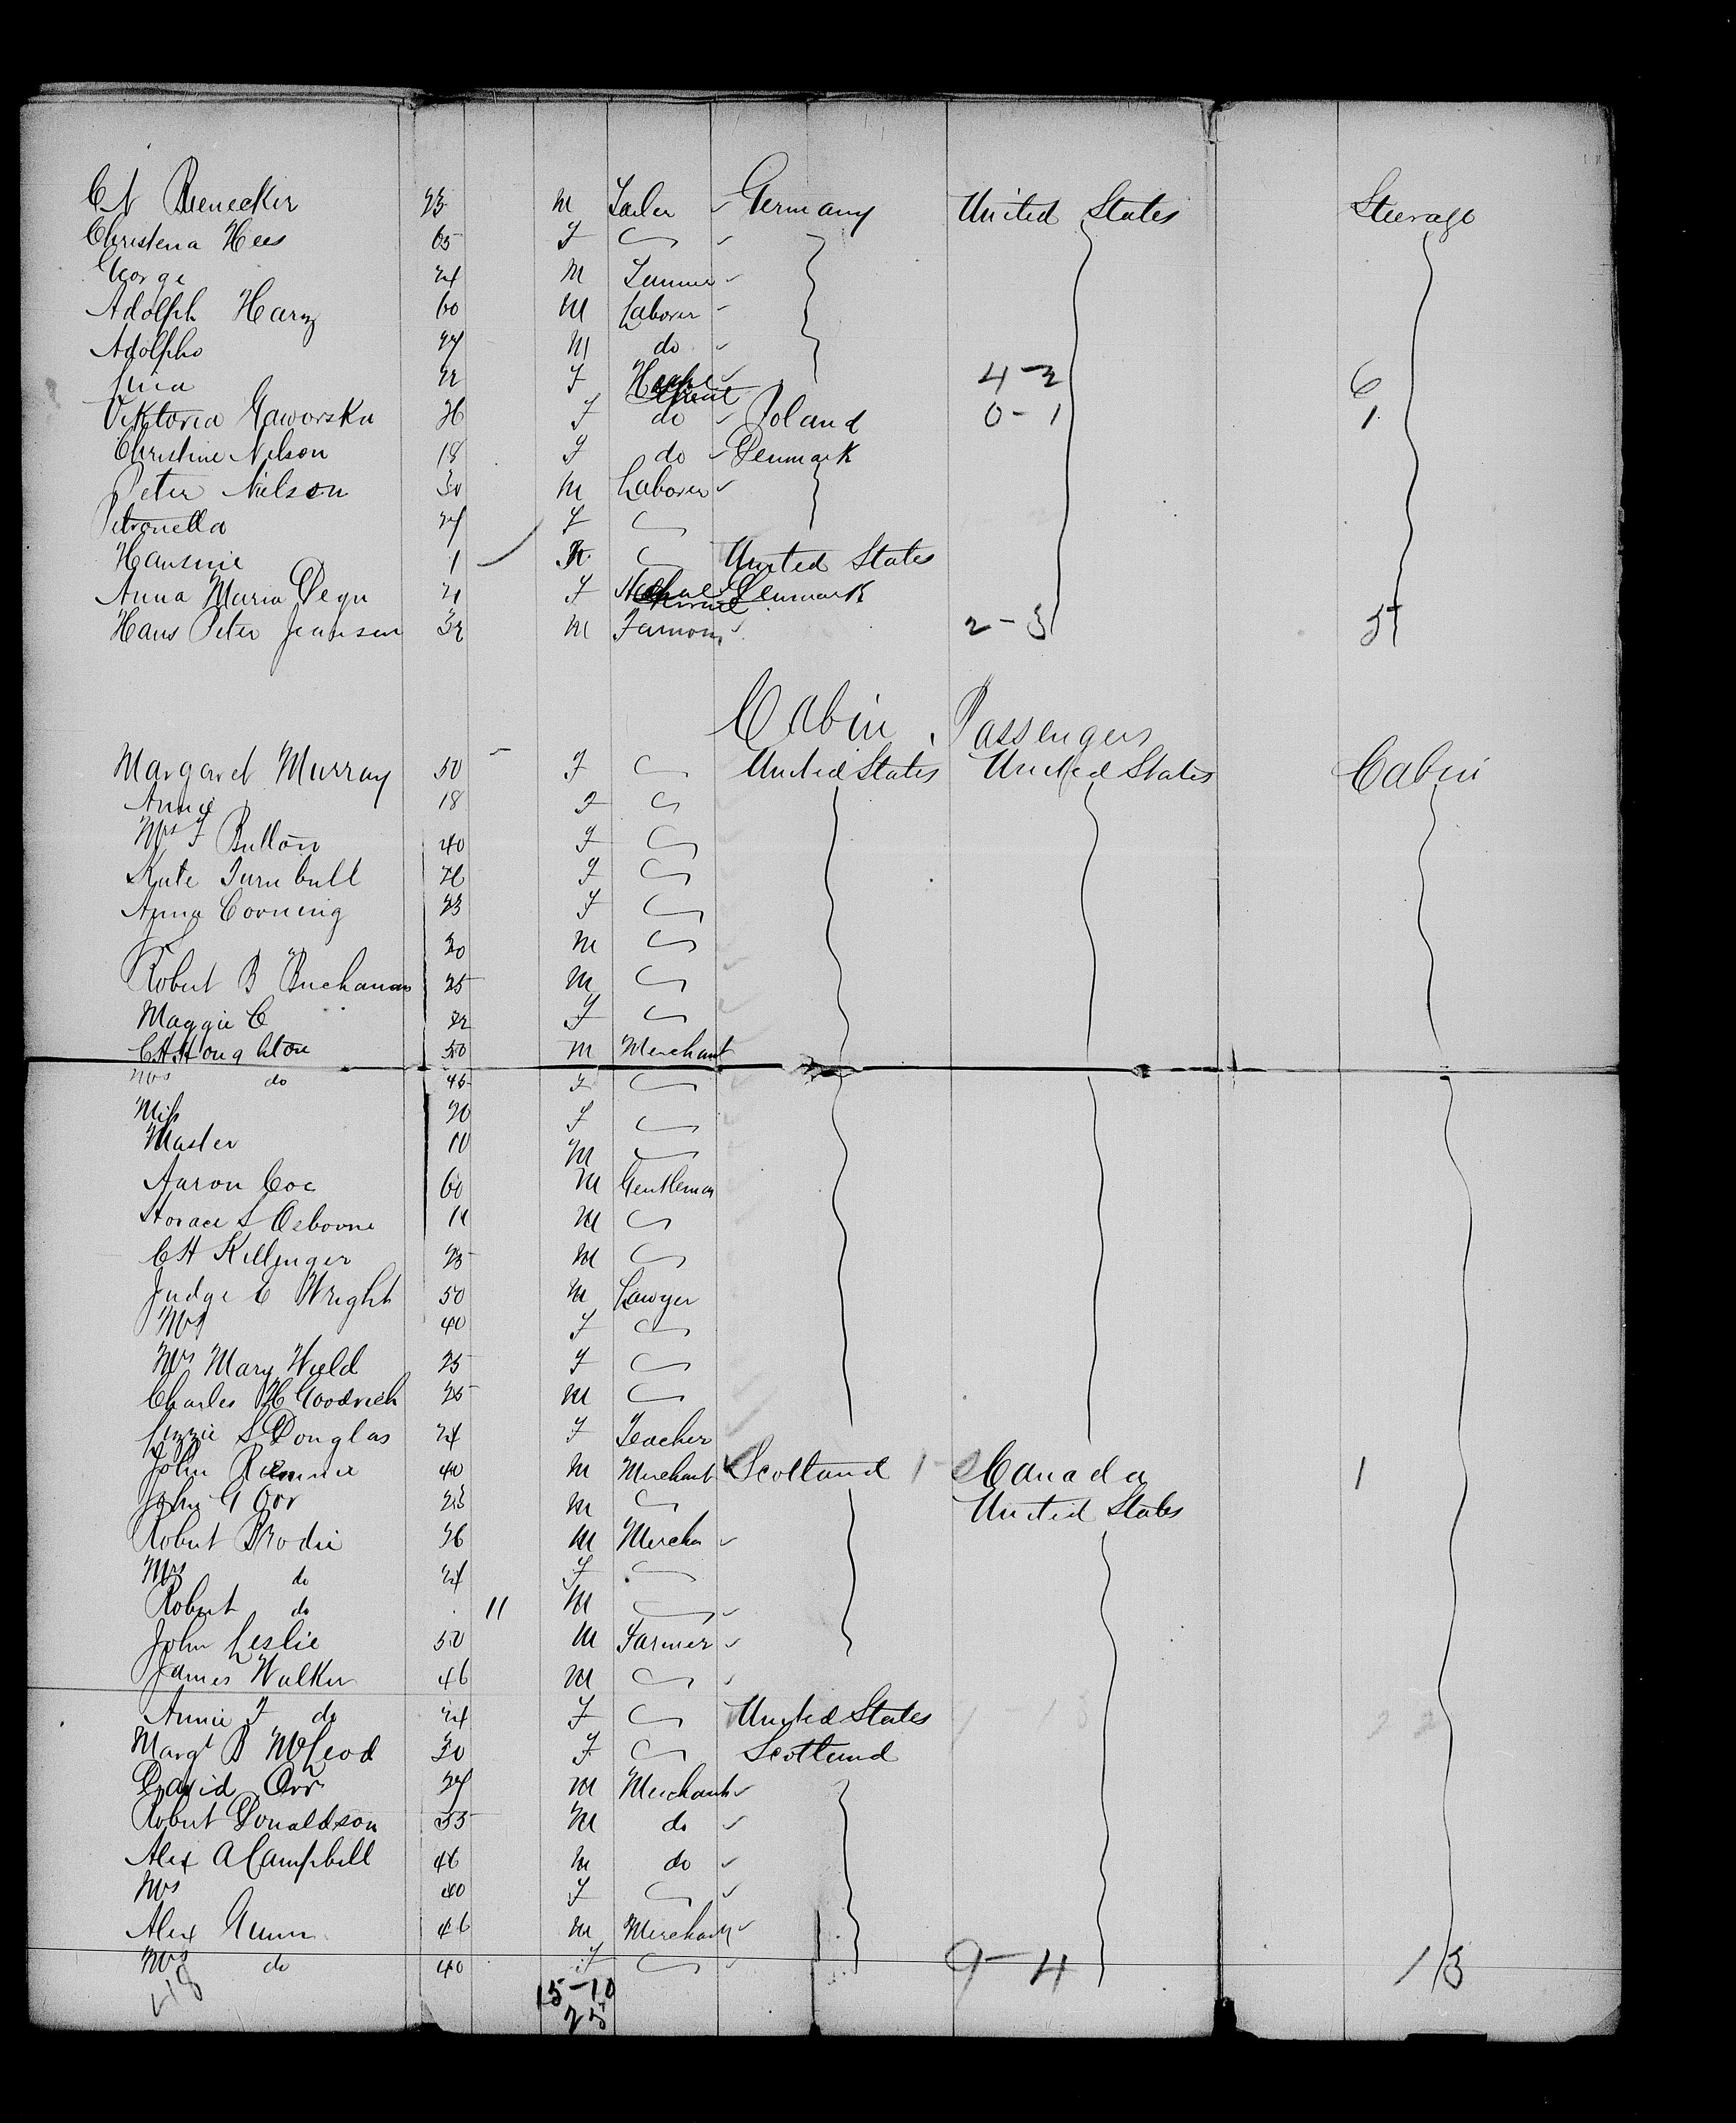 C N Benecker 23 M Germany United States Steerage
Christena Hees 65 F
George 24 M
Adolph Harz 60 M Laborer
Adolpho 27 M do
22 F 4-2 6
Viktoria Gaworska 26 F do Poland 0-1 1
Christine Nilson 18 F do Denmark
Peter Nielson 30 M Laborer
Petronella 27 F
Hansine 1 United States
Anna Maria Degn 21 F Denmark
Hans Peter Jeansen 32 M 2-3 5
Cabin Passengers
Margaret Murray 50 F United States United States Cabin
Annie 18 F
Mrs F Bullon 40 F
Kate Turnbull 26 F
Anna Corning 23 F
20 M
Robert B Buchanan 25 M
Maggie C 22 F
C H Houghton 50 M Merchant
Mrs do 45 F
Miss 20 F
Master 10 M
Aaron Coe 60 M Gentleman
Horace S Osborne M
C H Killinger 23 M
Judge C Wright 50 M Lawyer
Mrs 40 F
Mrs Mary Wield 25 F
Charles H Goodrich 25 M
Lizzie S Douglas 24 F Teacher
John Rennie 40 M Merchant Scotland Canada 1
John G Orr 23 M United States
Robert Brodie 26 M Mercha
Mrs do 24 F
Robert do 11 M
John Leslie 50 M Farmer
James Walker 46 M
Annie F do 24 F United States
Margt B McLeod 30 F Scotland
David Orr 27 M Merchant
Robert Donaldson 35 M do
Alex A Campbell 46 M do
Mrs 40 F
Alex Gunn 46 M Merchant
Mrs do 40 F 9-4 13
15-10
25